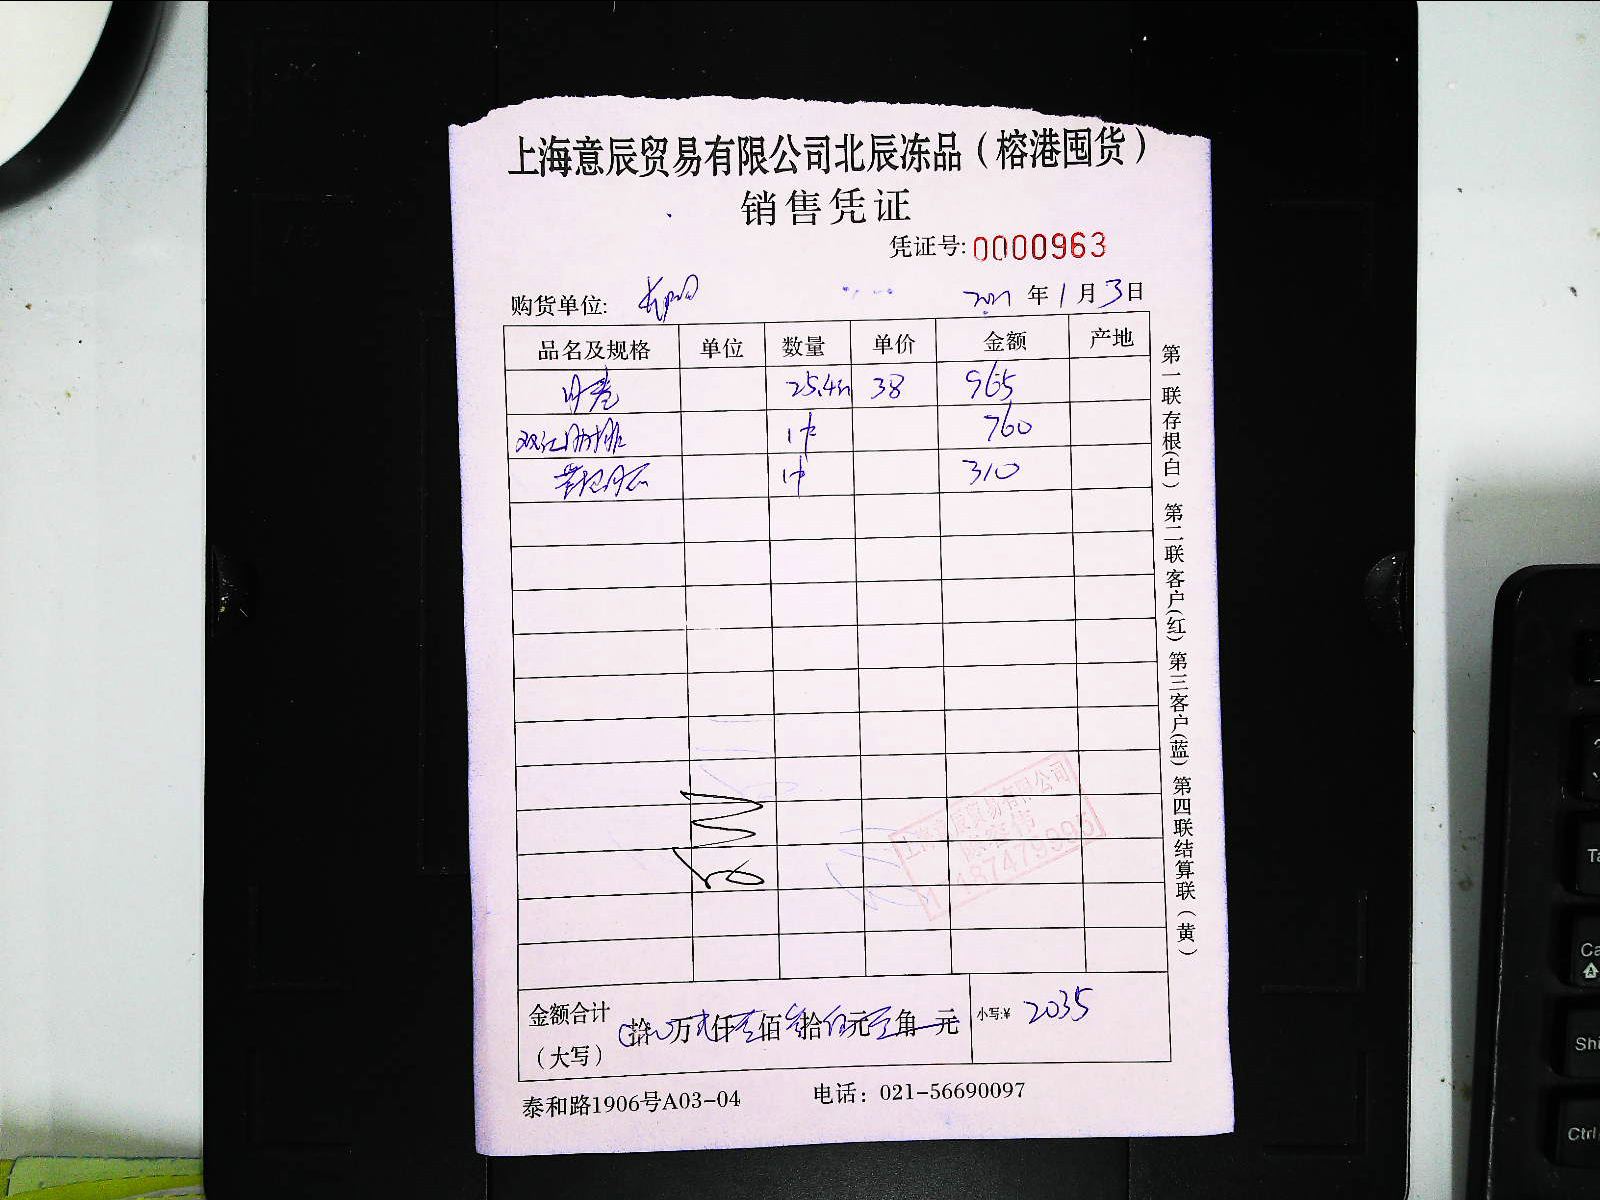 上海意辰贸易有限公司北辰冻品（榕港囤货）
销售凭证
凭证号: 0000963
购货单位:
2021 年 1 月 3 日
品名及规格 单位 数量 单价 金额 产地
25.4 38 965
双汇肋排 1件 760
1件 310
金额合计（大写） 拾 万 贰 仟 佰 叁 拾 伍 元 角 元 小写:¥ 2035
泰和路1906号A03-04 电话：021-56690097
第一联存根(白) 第二联客户(红) 第三客户(蓝) 第四联结算联（黄）
上海意辰贸易有限公司